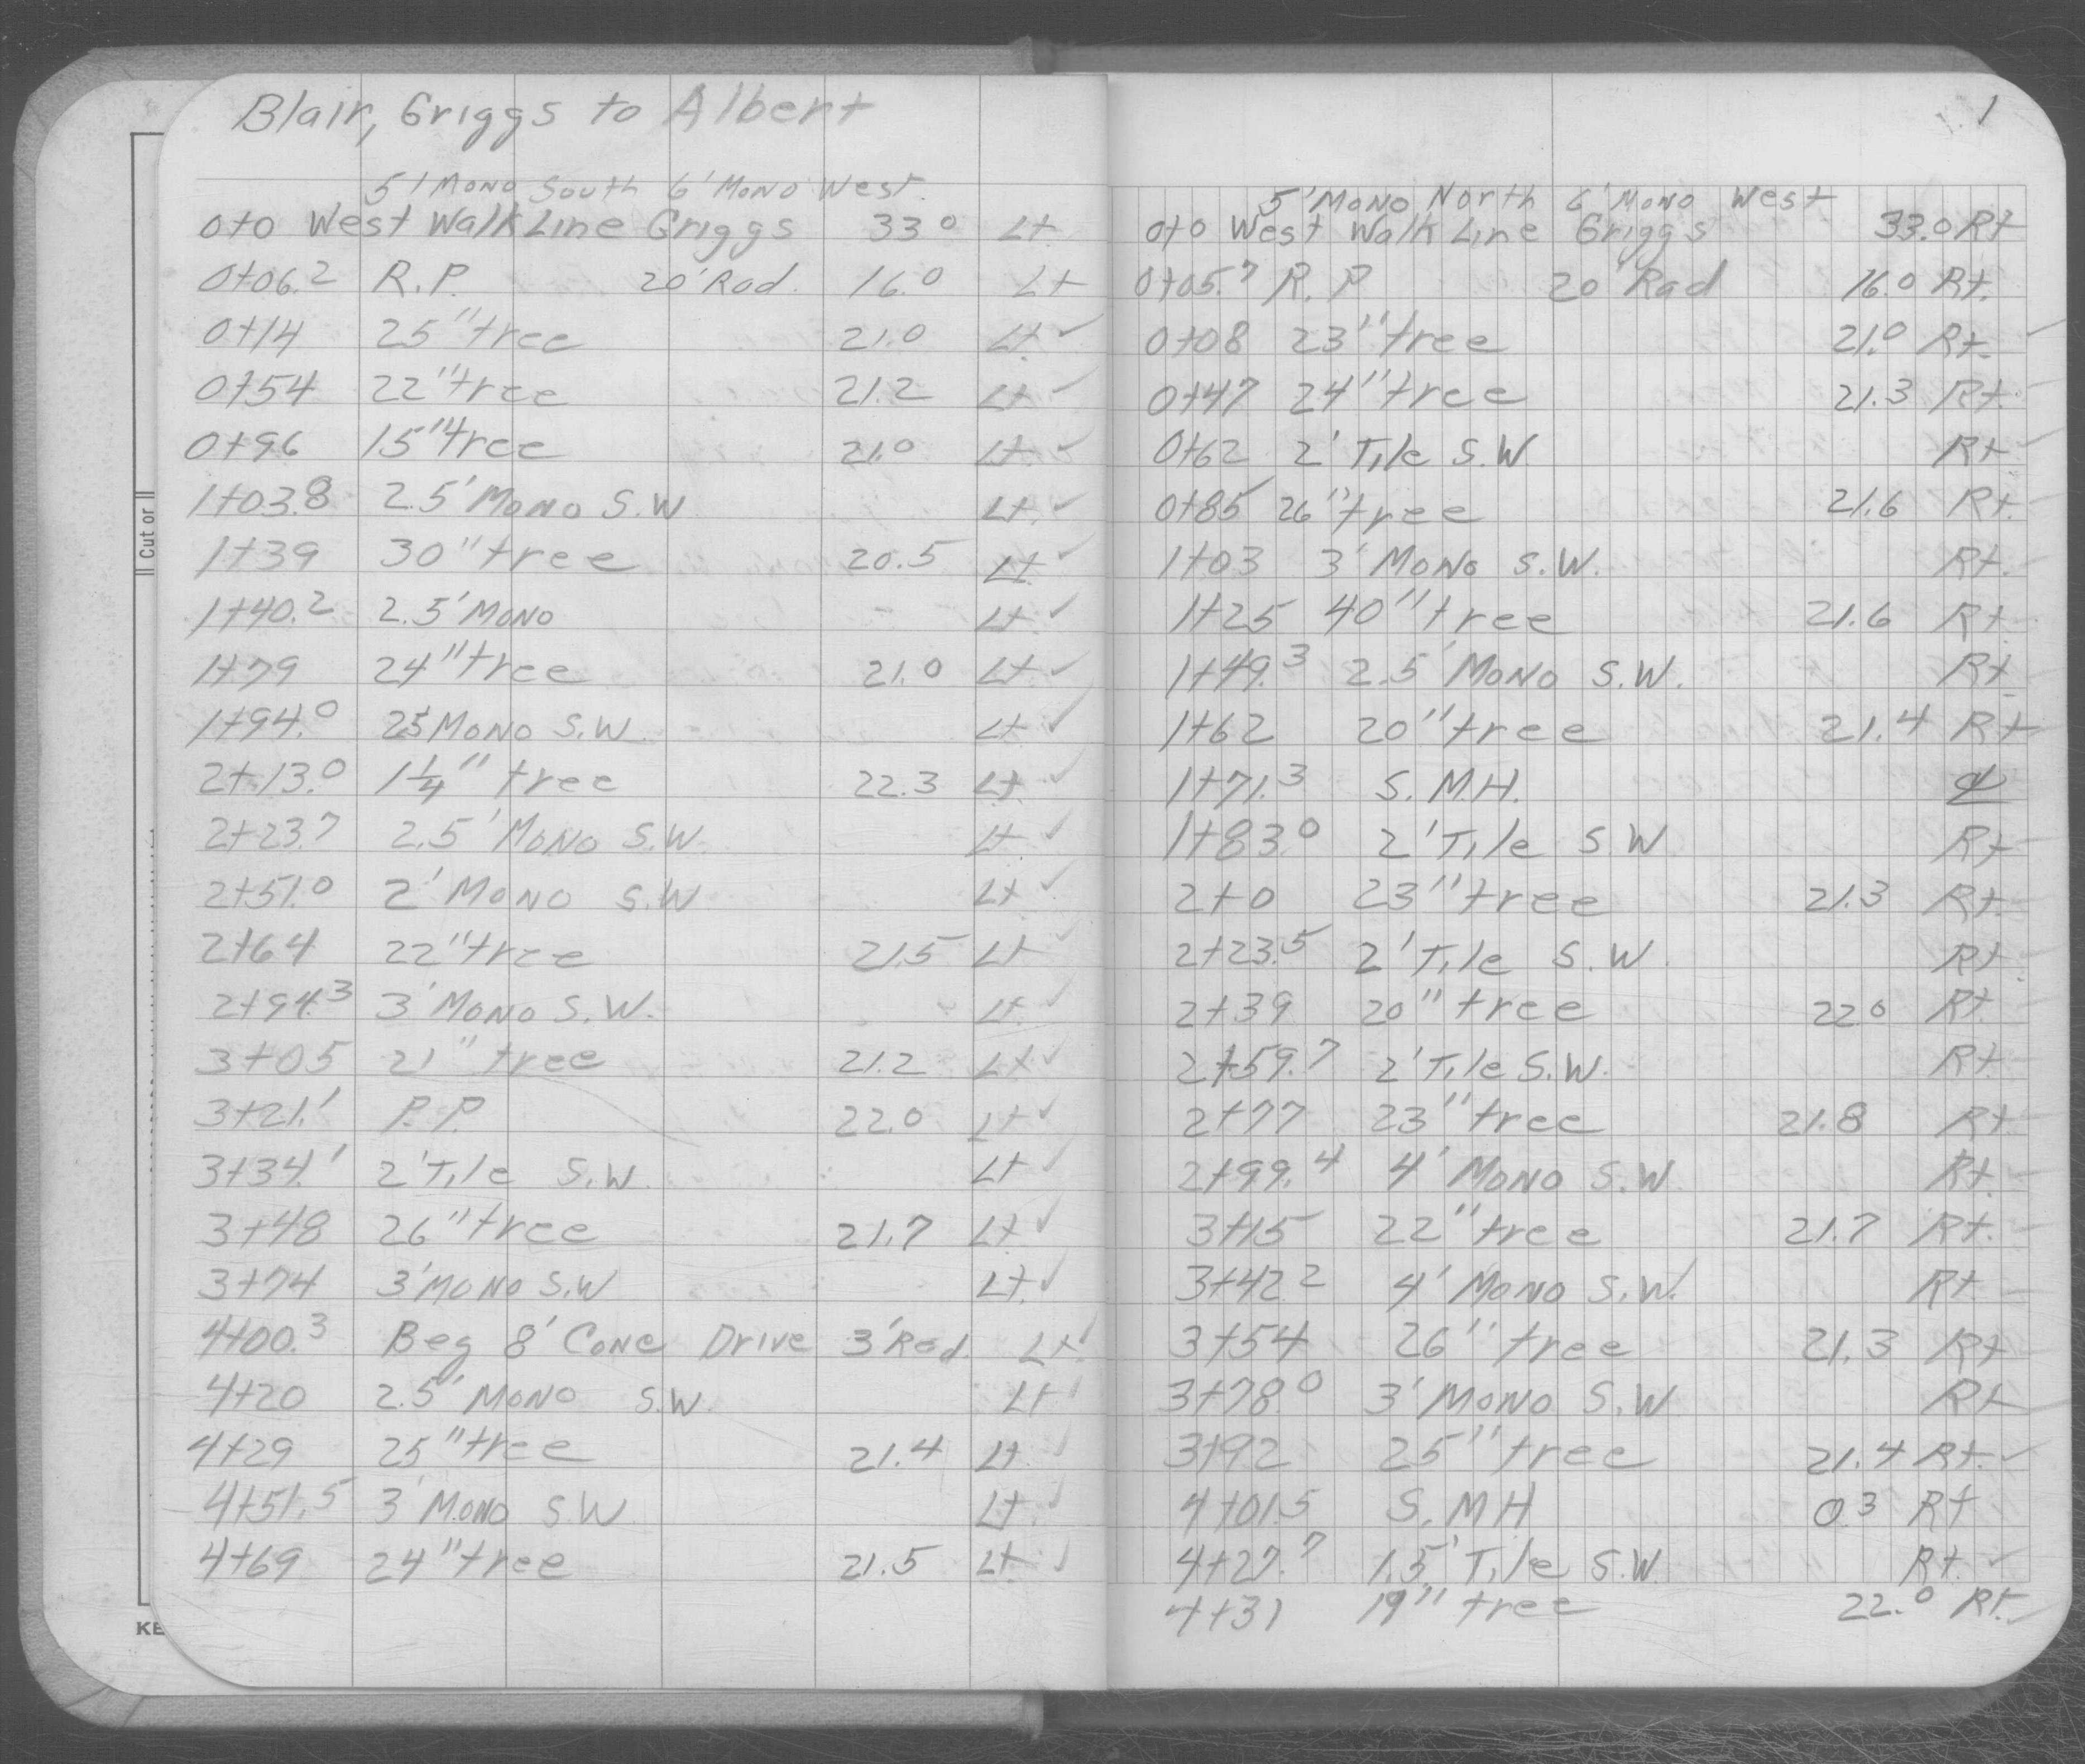 Blair, Griggs to Albert
5' Mono South 6' Mono West
0+0 West Walk Line Griggs 33.0 Lt
0+06.2 R.P. 20' Rad. 16.0 Lt
0+14 25" tree 21.0 Lt. ✓
0+54 22" tree 21.2 Lt ✓
0+96 15" tree 21.0 Lt. ✓
1+03.8 2.5' Mono S.W Lt. ✓
1+39 30" tree 20.5 Lt. ✓
1+40.2 2.5' Mono Lt. ✓
1+79 24" tree 21.0 Lt ✓
1+94.0 2.5' Mono S.W. Lt. ✓
2+13.0 1 1/4" tree 22.3 Lt. ✓
2+23.7 2.5' Mono S.W. Lt. ✓
2+51.0 2' Mono S.W Lt. ✓
2+64 22" tree 21.5 Lt ✓
2+94.3 3' Mono S.W. Lt. ✓
3+05 21" tree 21.2 Lt ✓
3+21.1 P.P. 22.0 Lt ✓
3+34.1 2' Tile S.W. Lt ✓
3+48 26" tree 21.7 Lt. ✓
3+74 3' Mono S.W Lt. ✓
4+00.3 Beg 8' Conc Drive 3' Rad. Lt. ✓
4+20 2.5' Mono S.W. Lt ✓
4+29 25" tree 21.4 Lt. ✓
4+51.5 3' Mono S W Lt. ✓
4+69 24" tree 21.5 Lt. ✓
1
5' Mono North 6' Mono West
0+0 West Walk Line Griggs 33.0 Rt
0+05.7 R.P 20' Rad 16.0 Rt.
0+08 23" tree 21.0 Rt. ✓
0+47 24" tree 21.3 Rt.
0+62 2' Tile S.W. Rt
0+85 26" tree 21.6 Rt.
1+03 3' Mono S.W. Rt.
1+25 40" tree 21.6 Rt.
1+49.3 2.5' Mono S.W. Rt.
1+62 20" tree 21.4 Rt
1+71.3 S.M.H. ℄
1+83.0 2' Tile S.W Rt
2+0 23" tree 21.3 Rt.
2+23.5 2' Tile S.W. Rt.
2+39 20" tree 22.0 Rt.
2+59.7 2' Tile S.W. Rt.
2+77 23" tree 21.8 Rt
2+99.4 4' Mono S.W. Rt.
3+15 22" tree 21.7 Rt.
3+42.2 4' Mono S.W. Rt.
3+54 26" tree 21.3 Rt
3+78.0 3' Mono S.W Rt
3+92 25" tree 21.4 Rt. ✓
4+01.5 S.MH 0.3 Rt
4+27.7 1.5' Tile S.W. Rt. ✓
4+31 19" tree 22.0 Rt.
Cut or
KE